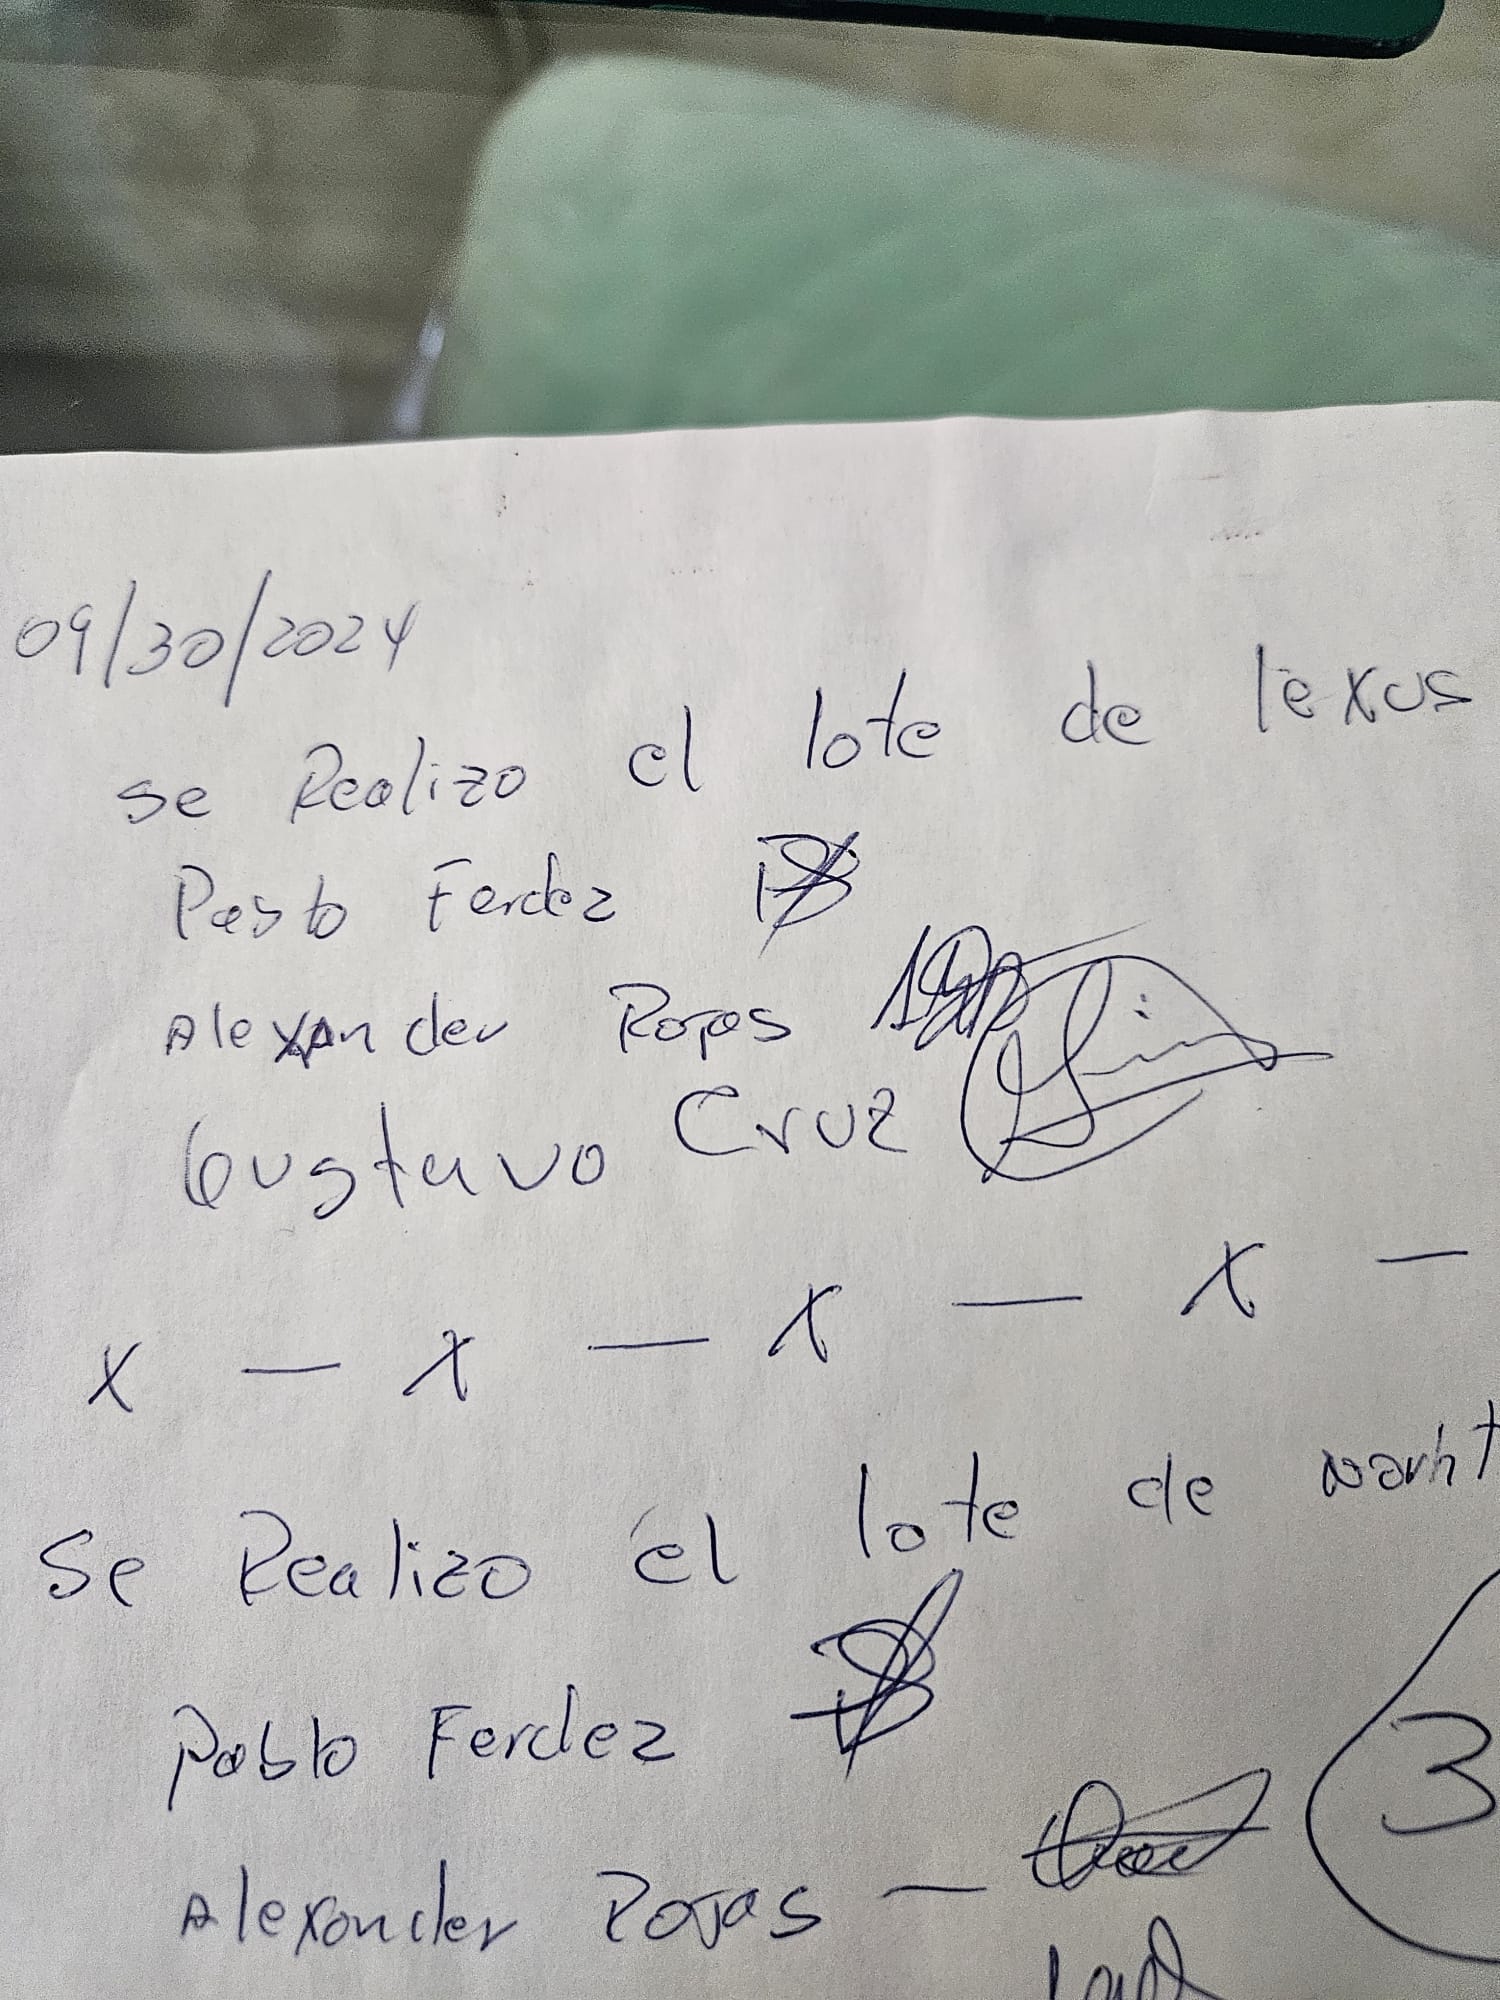 09/30/2024
se Realizo el lote de lexus
Pablo Ferdez
Alexander Rojas
Gustavo Cruz
x — x — x — x —
Se Realizo el lote de
Pablo Ferdez
3
Alexander Rojas —